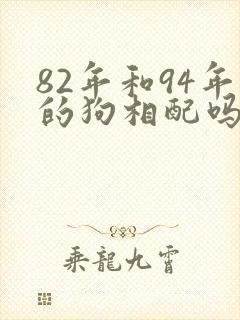 82年和94年
的狗相配吗
乘龍九霄